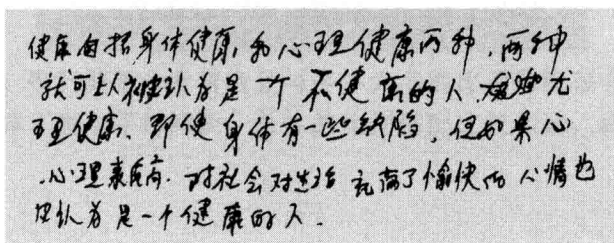 健康包括身体健康,和心理健康两种,两种
就可以被认为是一个不健康的人。尤
理健康。即使身体有一些缺陷,但如果心
心理表健康.对社会对生活充满了愉快的心情也
认为是一个健康的人.